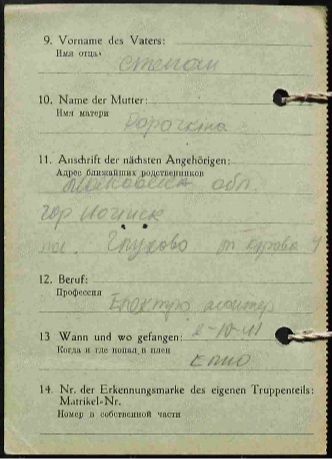 9. Vorname des Vaters:
Имя отца
Степан
10. Name der Mutter:
Имя матери
Корочкіна
11. Anschrift der nächsten Angehörigen:
Адрес ближайших родственников
Московская обл.
гор Ногинск
пос. Глухово
12. Beruf:
Профессия
Електро монтер
13 Wann und wo gefangen: 2-10-41
Когда и где попал в плен
14. Nr. der Erkennungsmarke des eigenen Truppenteils:
Matrikel-Nr.
Номер в собственной части